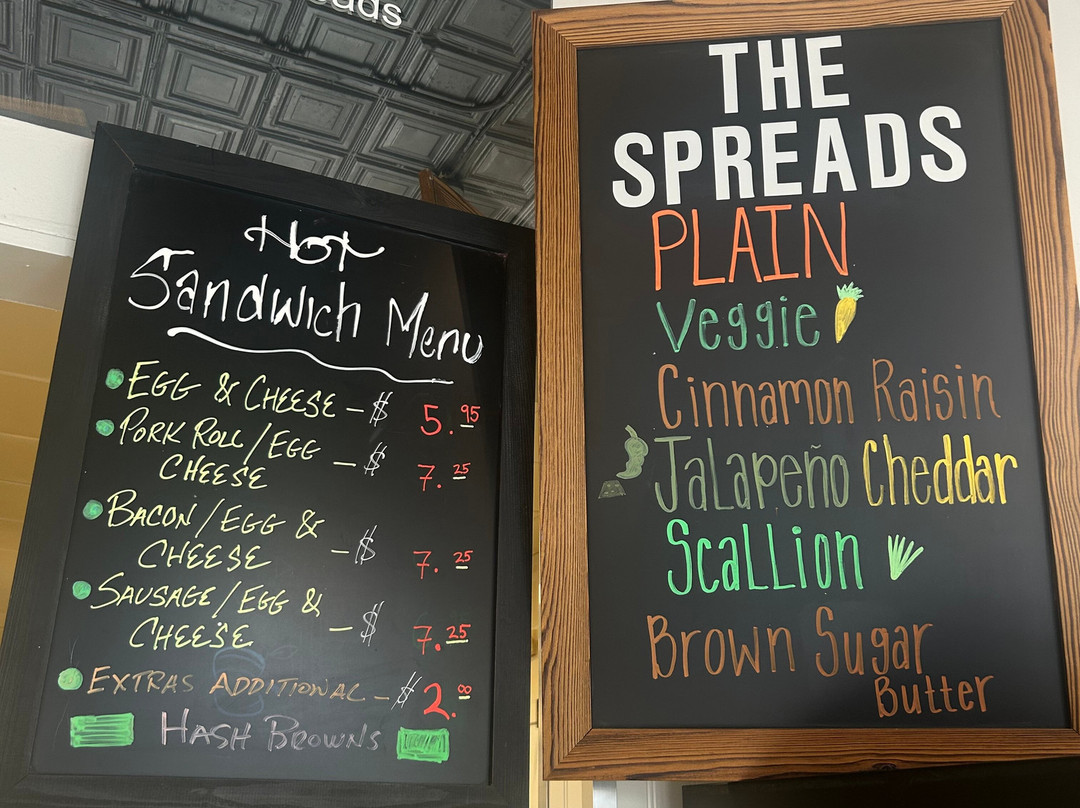 Hot
Sandwich Menu
EGG & CHEESE - $ 5.95
PORK ROLL/EGG
CHEESE - $ 7.25
BACON/EGG &
CHEESE - $ 7.25
SAUSAGE/EGG &
CHEESE - $ 7.25
EXTRAS ADDITIONAL - $ 2.00
HASH BROWNS
THE
SPREADS
PLAIN
Veggie
Cinnamon Raisin
Jalapeño Cheddar
Scallion
Brown Sugar
Butter